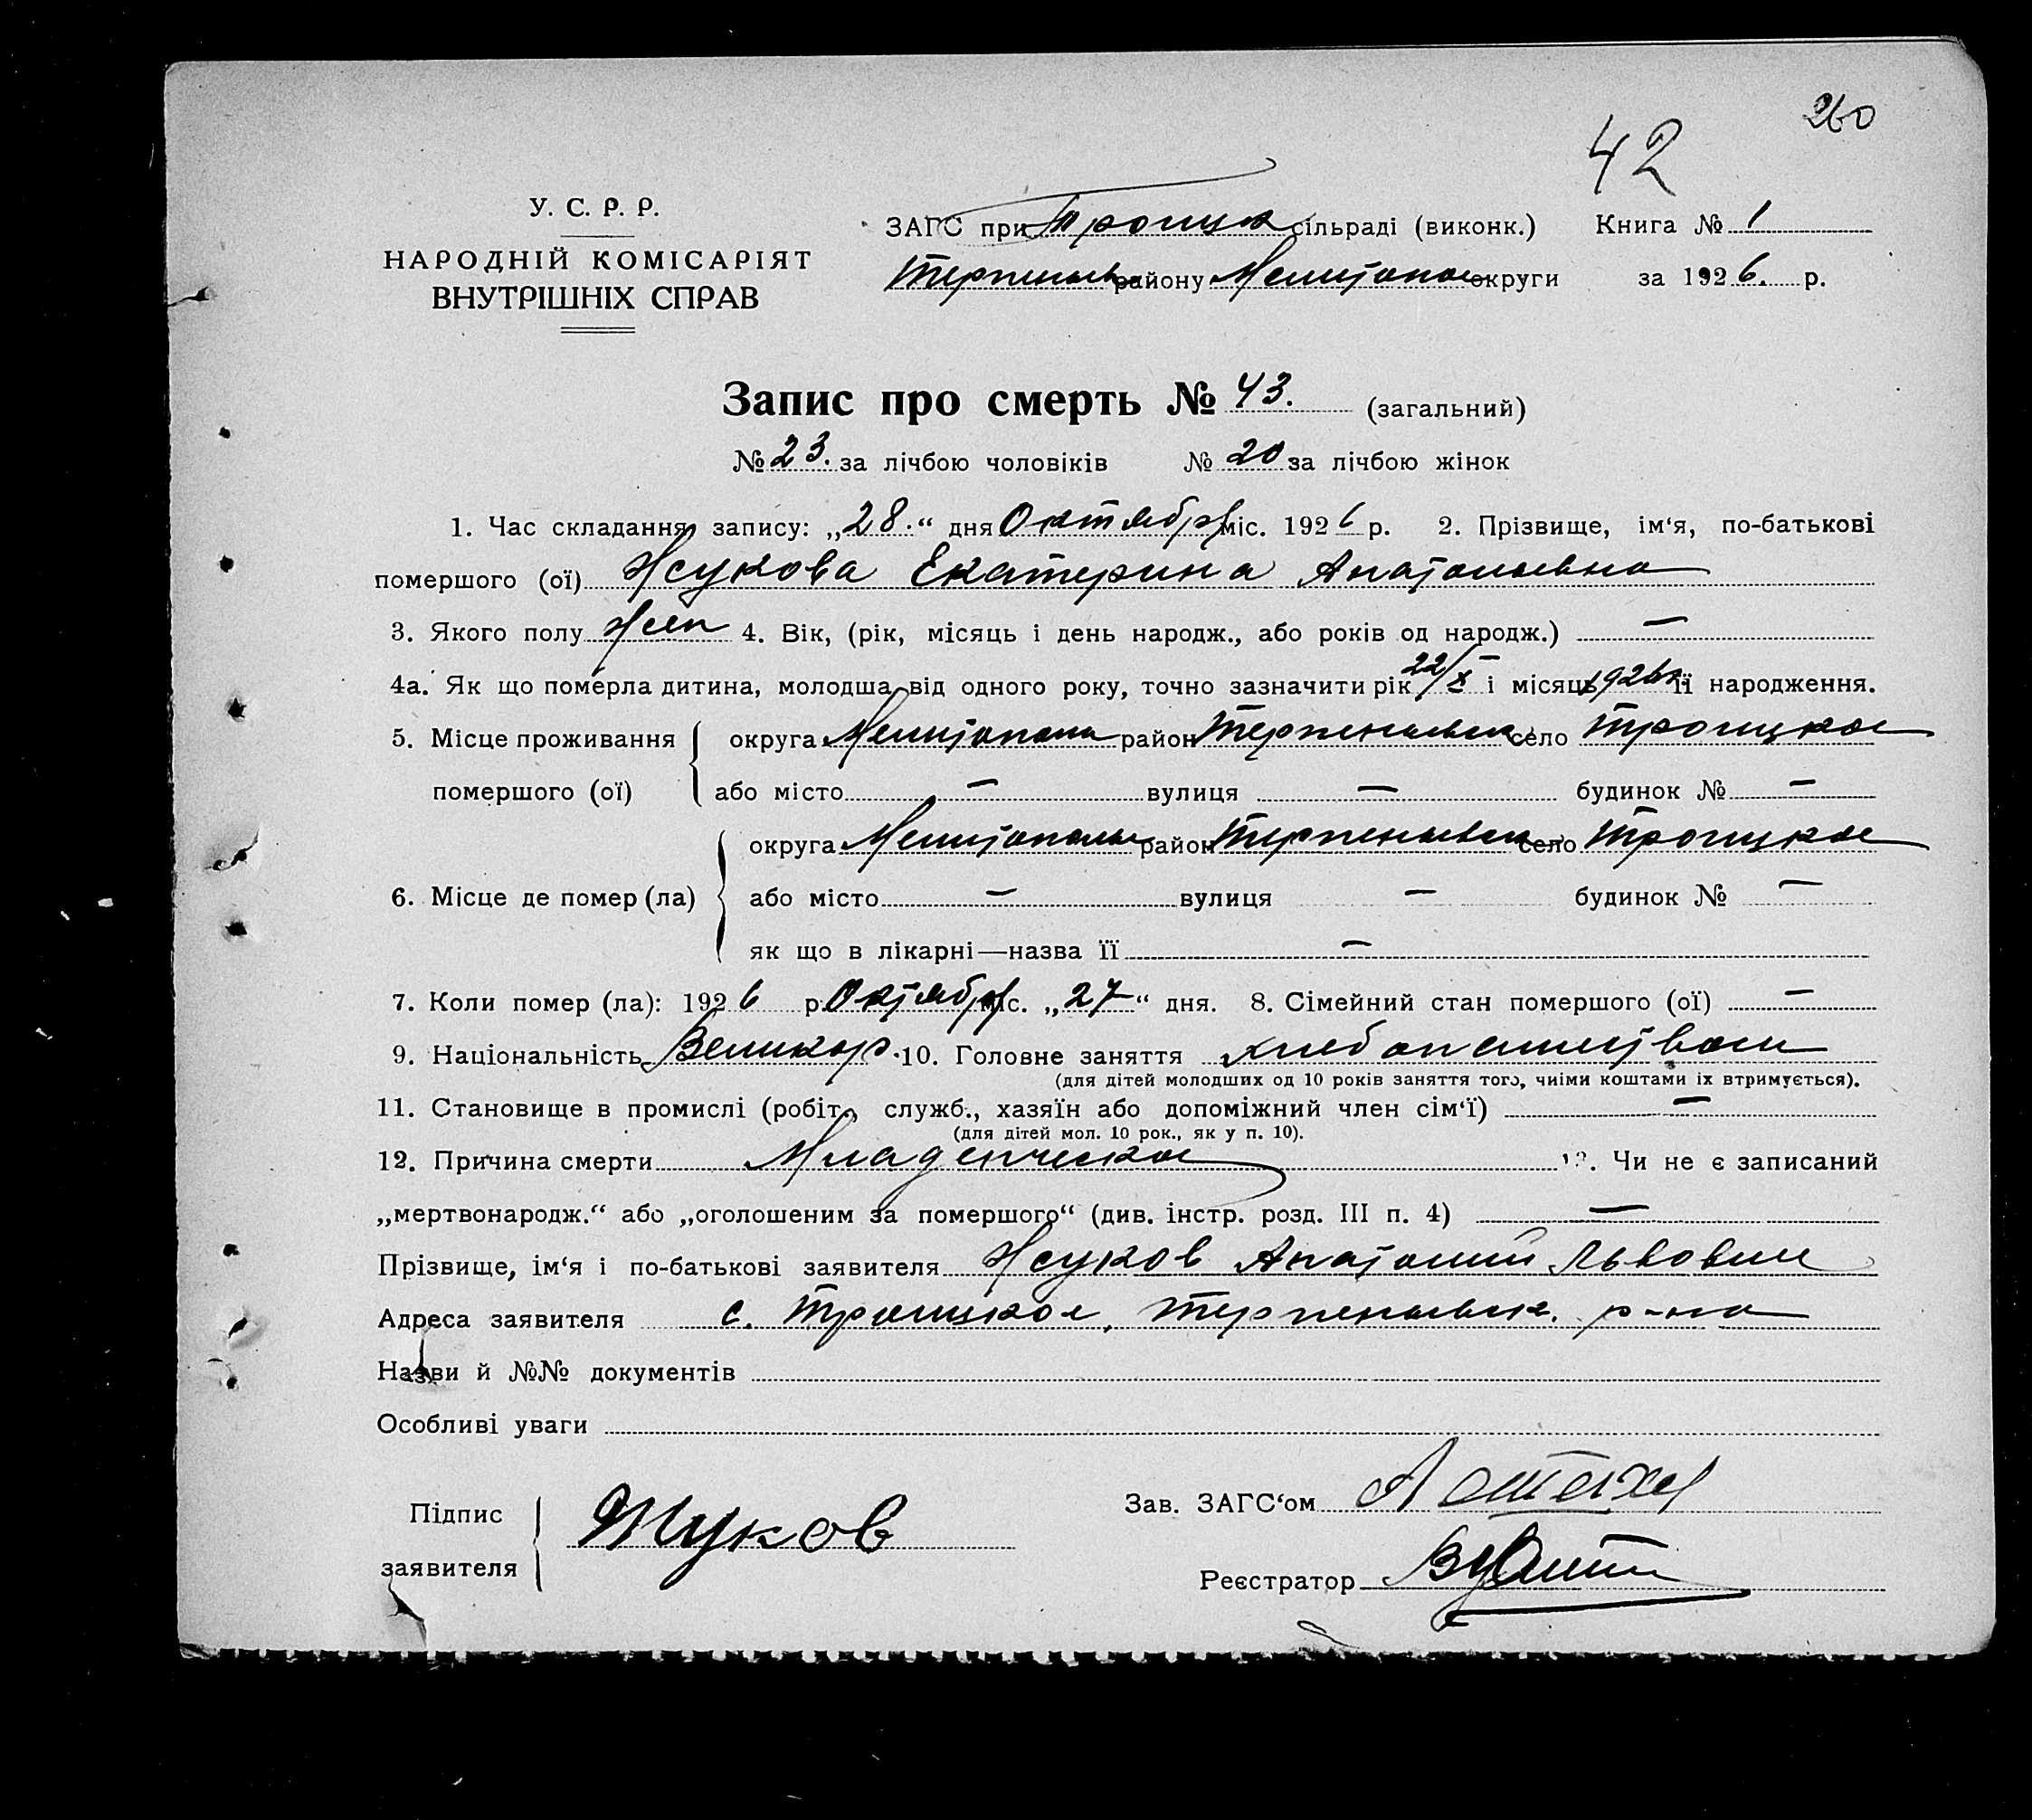 260
42
У. С. Р. Р.
НАРОДНІЙ КОМІСАРІЯТ
ВНУТРІШНІХ СПРАВ
ЗАГС при Троицк сільраді (виконк.) Книга № 1
Терпеньев району Мелитопол округи за 1926. р.
Запис про смерть № 43. (загальний)
№ 23. за лічбою чоловіків № 20 за лічбою жінок
1. Час складання запису: „28.“ дня Октября міс. 1926 р. 2. Прізвище, ім'я, по-батькові
помершого (ої) Жукова Екатерина Анатольевна
3. Якого полу Жен 4. Вік, (рік, місяць і день народж., або років од народж.) —
4а. Як що померла дитина, молодша від одного року, точно зазначити рік 22/X і місяць 1926г. її народження.
5. Місце проживання округа Мелитополь район Терпеньевск село Троицкое
помершого (ої) або місто — вулиця — будинок № —
округа Мелитополь район Терпеньевск село Троицкое
6. Місце де помер (ла) або місто — вулиця — будинок № —
як що в лікарні—назва її —
7. Коли помер (ла): 1926 р. Октября міс. „27“ дня. 8. Сімейний стан помершого (ої) —
9. Національність Великор. 10. Головне заняття хлебопашеством
(для дітей молодших од 10 років заняття того, чиїми коштами іх втримується).
11. Становище в промислі (робіт., служб., хазяїн або допоміжний член сім'ї) —
(для дітей мол. 10 рок., як у п. 10).
12. Причина смерти Младенческая 13. Чи не є записаний
„мертвонародж.“ або „оголошеним за помершого“ (див. інстр. розд. III п. 4) —
Прізвище, ім'я і по-батькові заявителя Жуков Анатолий Львович
Адреса заявителя с. Троицкое, Терпеньевск. р-на
Назви й №№ документів
Особливі уваги
Підпис заявителя Жуков
Зав. ЗАГС'ом
Реєстратор